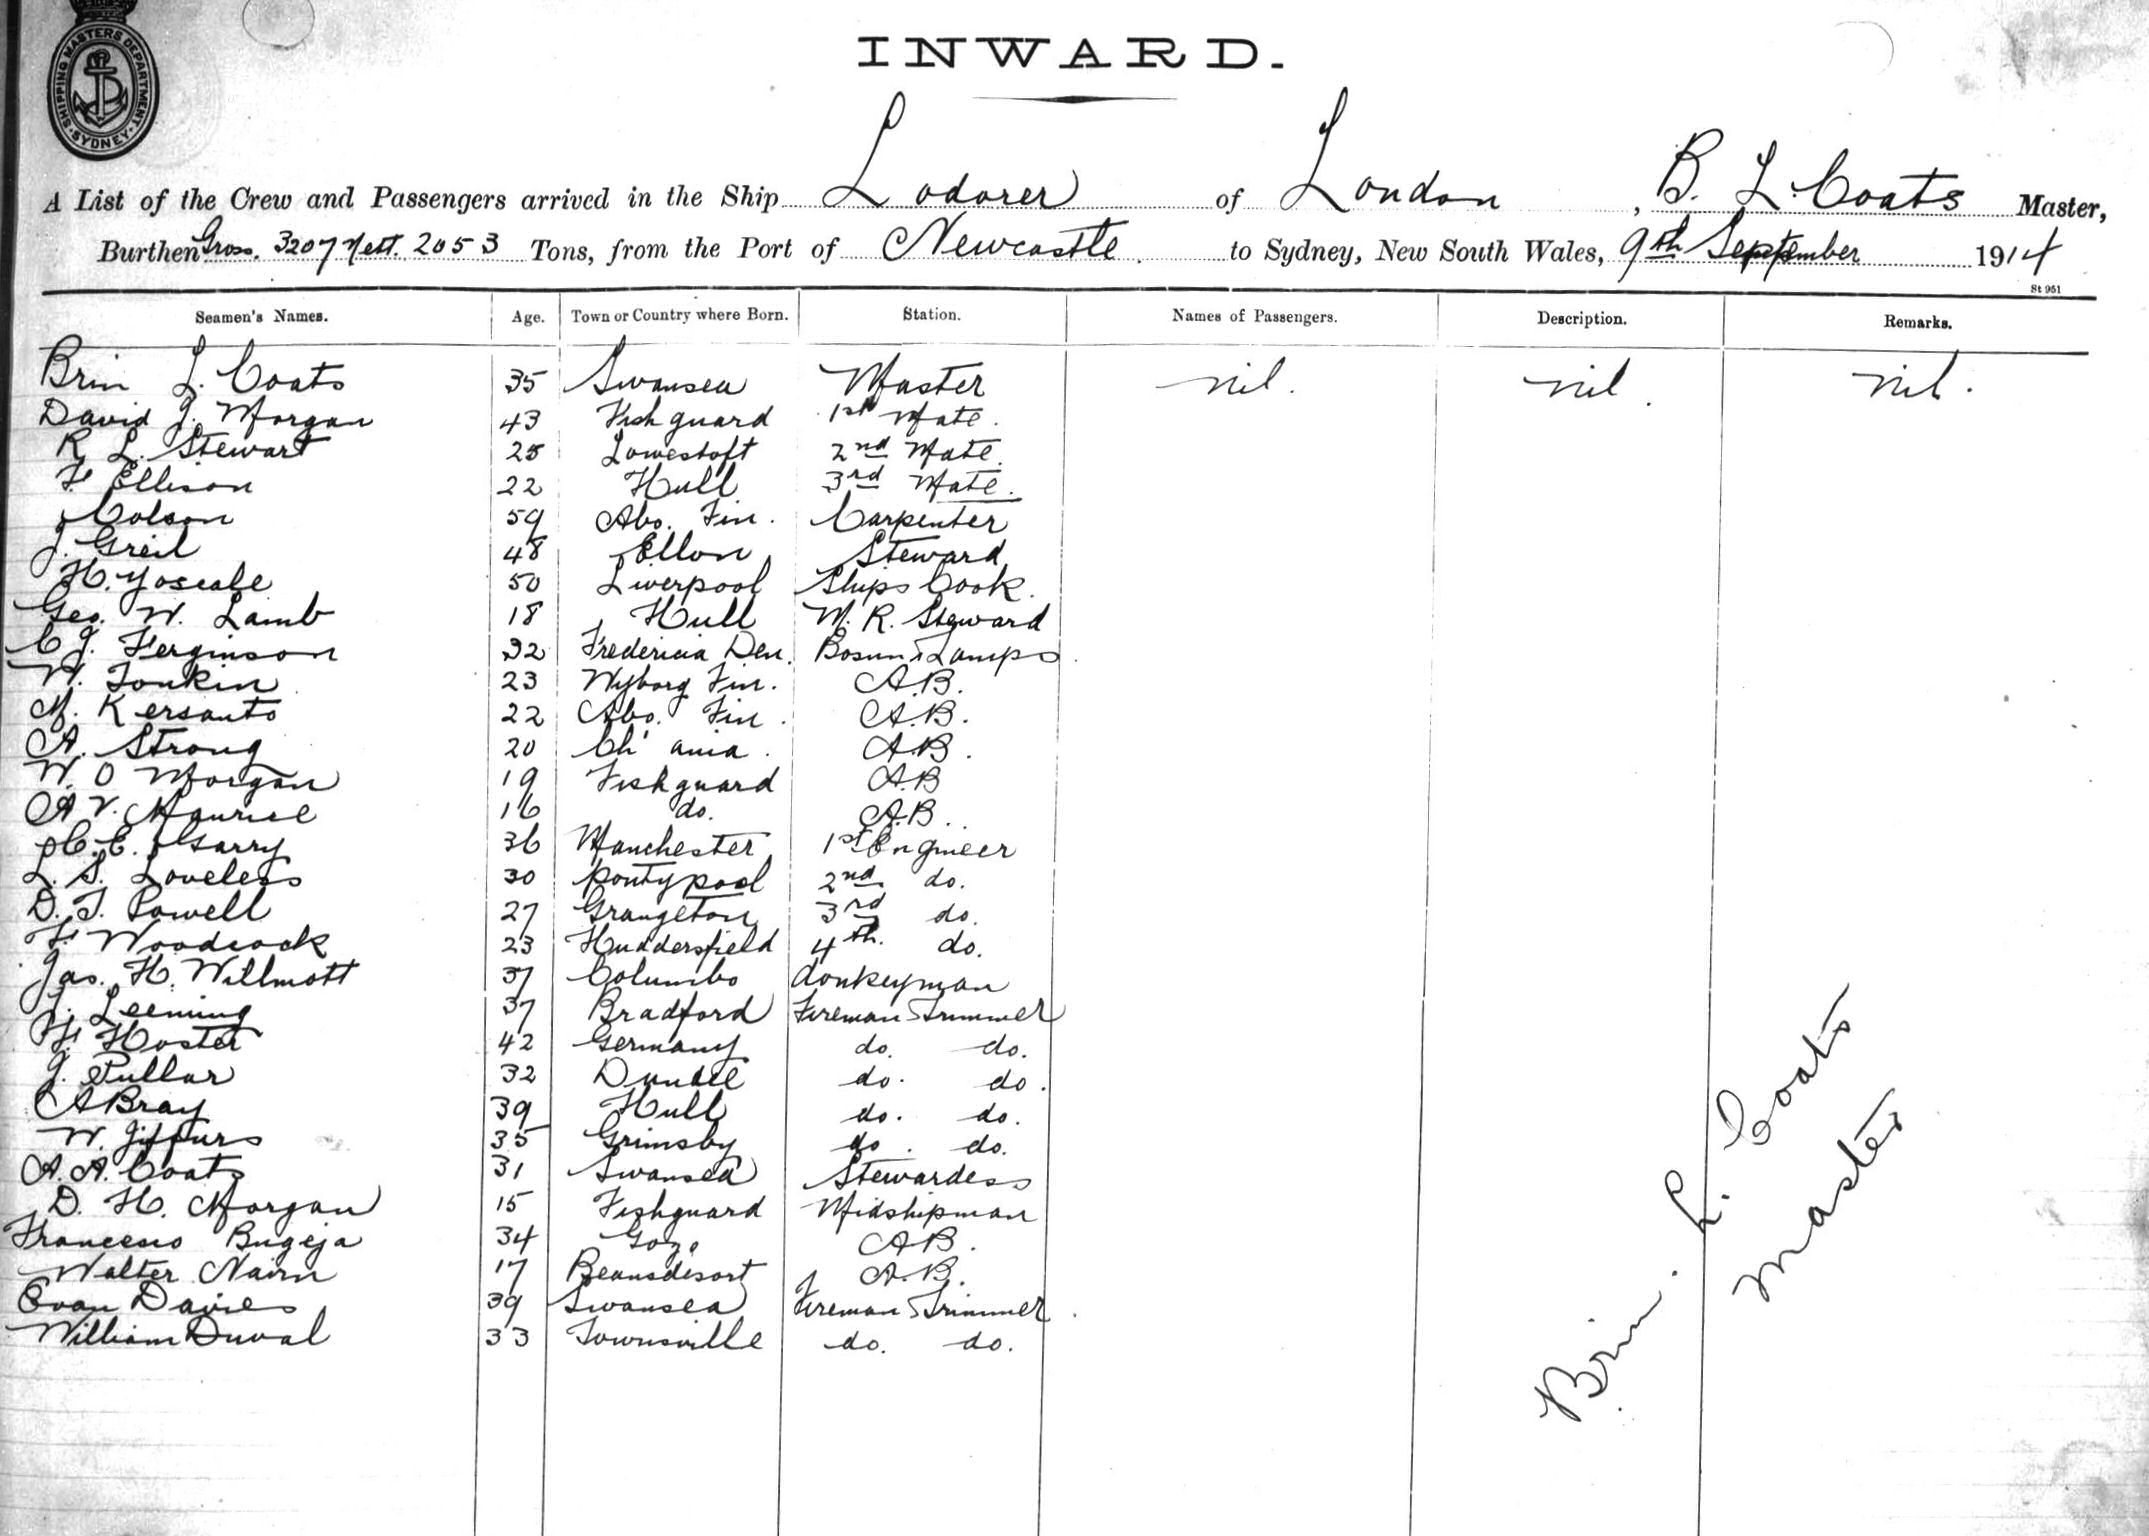 SHIPPING MASTERS DEPARTMENT
SYDNEY
INWARD.
A List of the Crew and Passengers arrived in the Ship Lodorer of London, B. L. Coats Master,
Burthen Gross. 3207 Nett. 2053 Tons, from the Port of Newcastle to Sydney, New South Wales, 9th September 1914
St 951
Seamen's Names. Age. Town or Country where Born. Station. Names of Passengers. Description. Remarks.
Brin L. Coats 35 Swansea Master nil. nil. nil.
David J. Morgan 43 Fishguard 1st Mate.
R L. Stewart 25 Lowestoft 2nd Mate.
F Ellison 22 Hull 3rd Mate.
Colson 59 Abo. Fin. Carpenter
J. Greil 48 Ellon Steward
H. Yoscale 50 Liverpool Ships Cook.
Geo. W. Lamb 18 Hull M. R. Steward
C J. Ferginson 32 Fredericia Den. Bosun & Lamps
W. Tonkin 23 Wyborg Fin. A.B.
M. Kersanto 22 Abo. Fin. A.B.
A. Strong 20 Ch'ania. A.B.
W. O Morgan 19 Fishguard A.B
A V. Maurice 16 do. A.B.
H. E. Garry 36 Manchester 1st Engineer
L. S. Loveless 30 Pontypool 2nd do.
D. T. Powell 27 Grangeton 3rd do.
F. Woodcock 23 Huddersfield 4th. do.
Jas. H. Willmott 37 Columbo donkeyman
J. Leeming 37 Bradford Fireman Trimmer
F. Hoster 42 Germany do. do.
J. Pullar 32 Dundee do. do.
A Bray 39 Hull do. do.
W. 35 Grimsby do. do.
A. A. Coats 31 Swansea Stewardess
D. H. Morgan 15 Fishguard Midshipman
Francesco Bugeja 34 Gozo A B.
Walter Nairn 17 Beausdesort A.B.
Evan Davies 39 Swansea Fireman Trimmer
William Duval 33 Townsville do. do.
Brin. L. Coats
Master